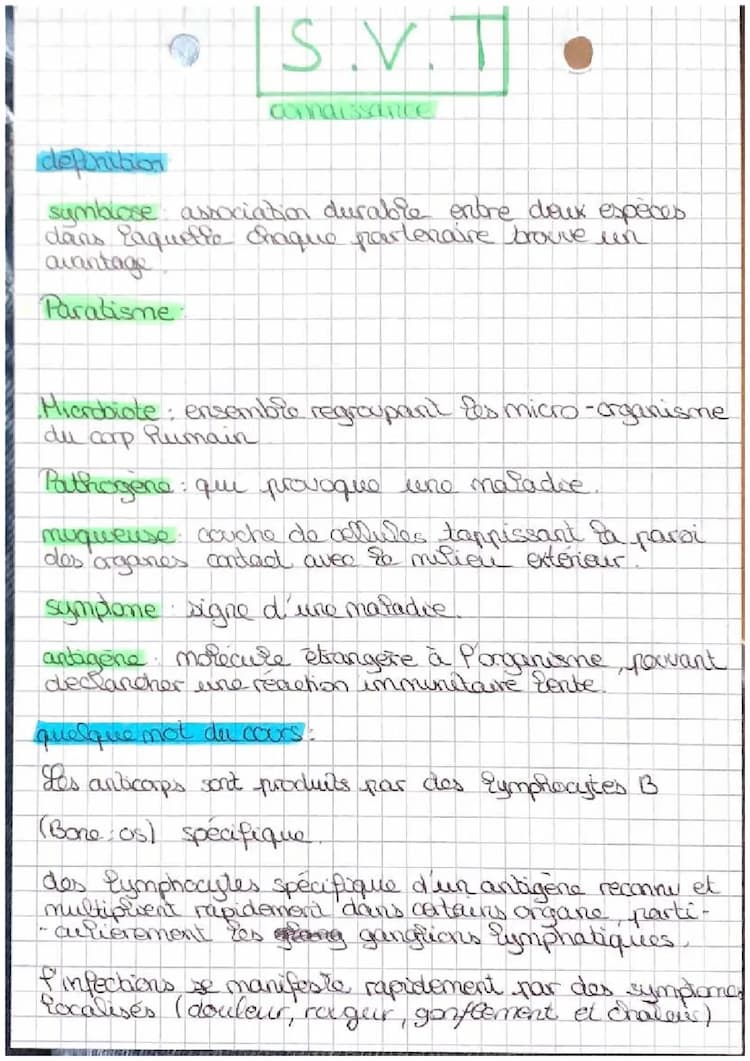 S.V.T
connaissance
définition
symbiose : association durable entre deux espèces
dans laquelle chaque partenaire trouve un
avantage.
Paratisme :
Microbiote : ensemble regroupant les micro-organisme
du corp humain
Pathogène : qui provoque une maladie.
muqueuse : couche de cellules tappissant la paroi
des organes contact avec le milieu extérieur.
symptome : signe d'une maladie.
antigène : molécule étrangère à l'organisme, pouvant
declancher une réaction immunitaire lente.
quelque mot du cours :
Les anticorps sont produits par des lymphocytes B
(Bone : os) spécifique.
des lymphocytes spécifique d'un antigène reconnu et
multiplient rapidement dans certains organe, parti-
-culièrement les ganglions lymphatiques.
l'infections se manifeste rapidement par des symptomes
localisés (douleur, rougur, gonflement et chaleur)